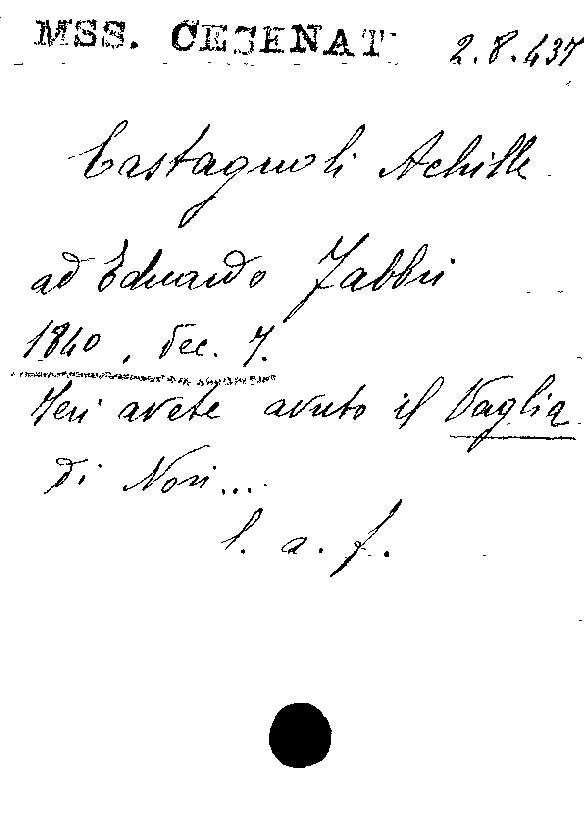 MSS. CESENAT 2.8.437
Castagnoli Achille
ad Eduardo Fabbri
1840, dec. 7.
Ieri avete avuto il Vaglia
di Nori...
l. a. f.